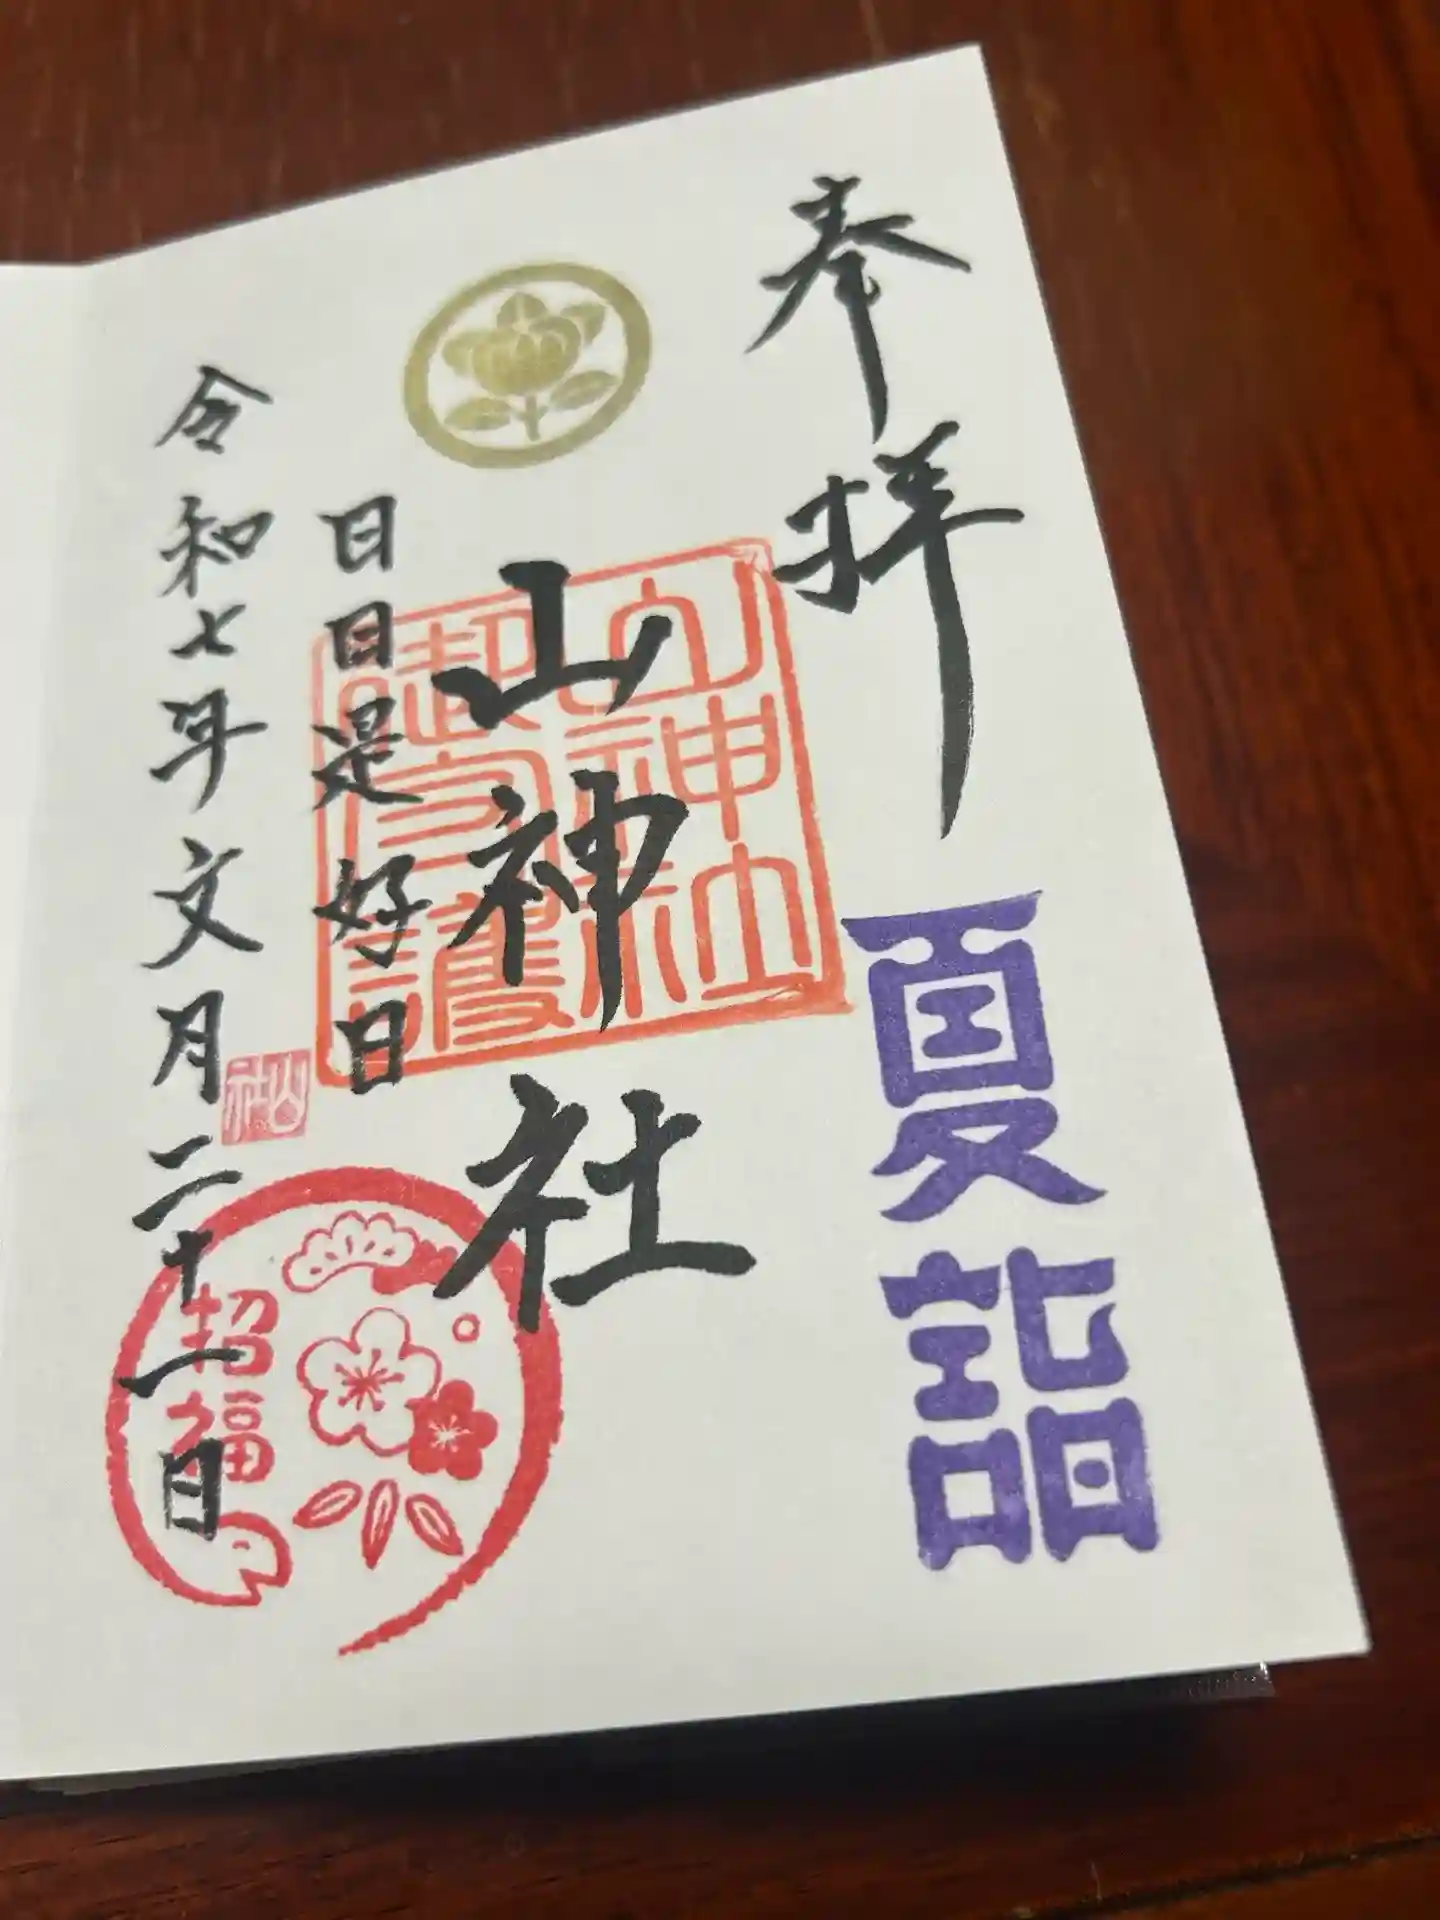 奉拝
夏詣
山神社
山神社
御守護
日日是好日
山社
令和七年文月二十一日
招福